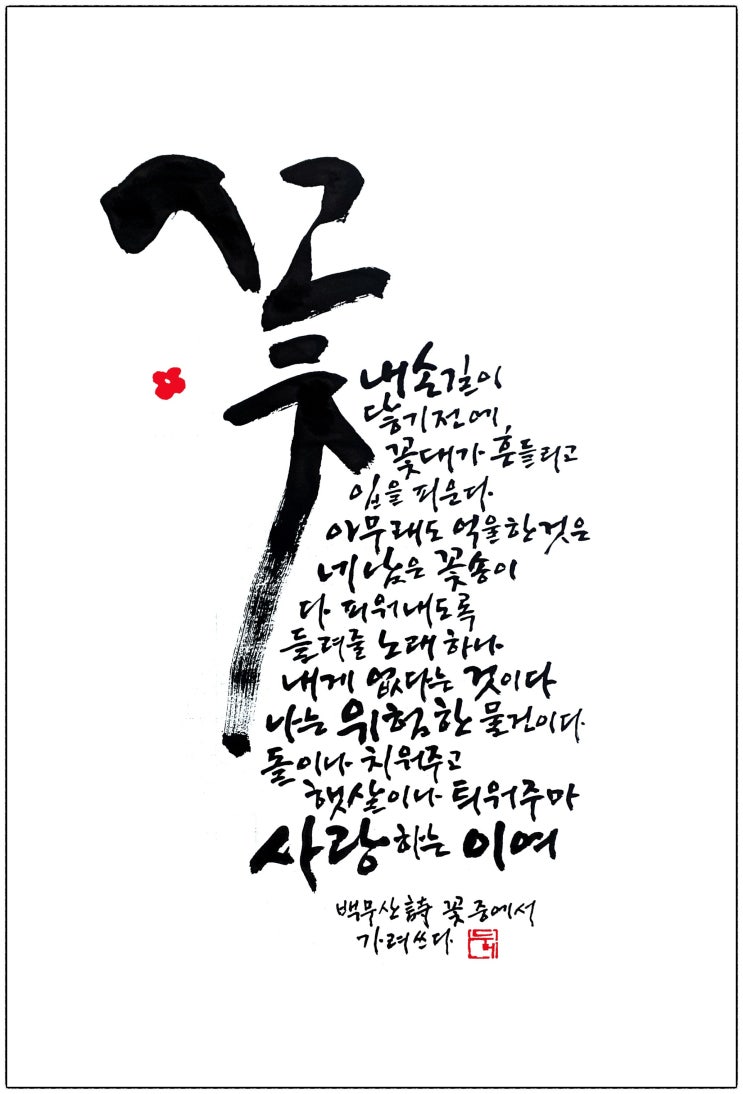 꽃
내 손길이
닿기전에
꽃대가 흔들리고
잎을 피운다
아무래도 억울한것은
네 남은 꽃송이
다 피워내도록
들려줄 노래 하나
내게 없다는 것이다
나는 위험한 물건이다
돌이나 치워주고
햇살이나 틔워주마
사랑하는 이여
백무산 詩 꽃 중에서
가려쓰다